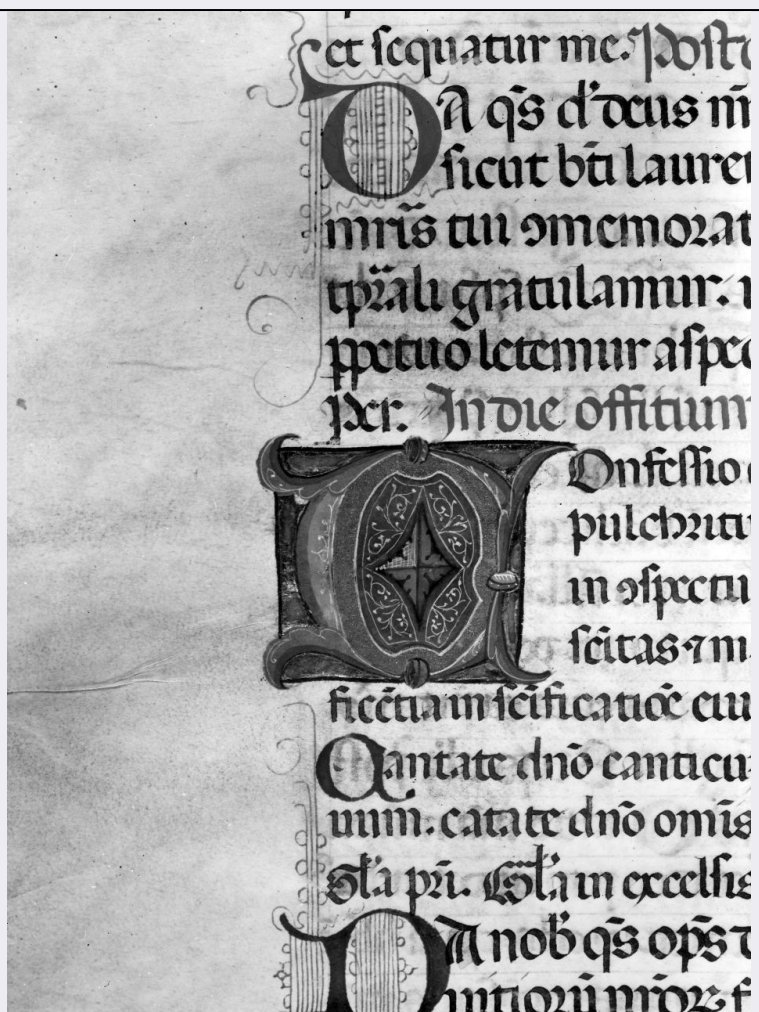 et sequatur me. Post
DA q̄s d̓ deus nr̄
sicut bt̄i laure
mr̄is tui ꝯmemorat
tp̄rali gratulamur.
ꝑpetuo letemur aspec
Per. In die offitium
COnfessio
pulchritu
in ꝯspectu
sc̄itas ⁊ m
ficētia in sc̄ificatiōe eiu
Cantate dn̄o canticu
uum. cātate dn̄o omīs
Gl̓a pr̄i. Gl̓a in excelsis
DA nob̓ q̄s op̄s